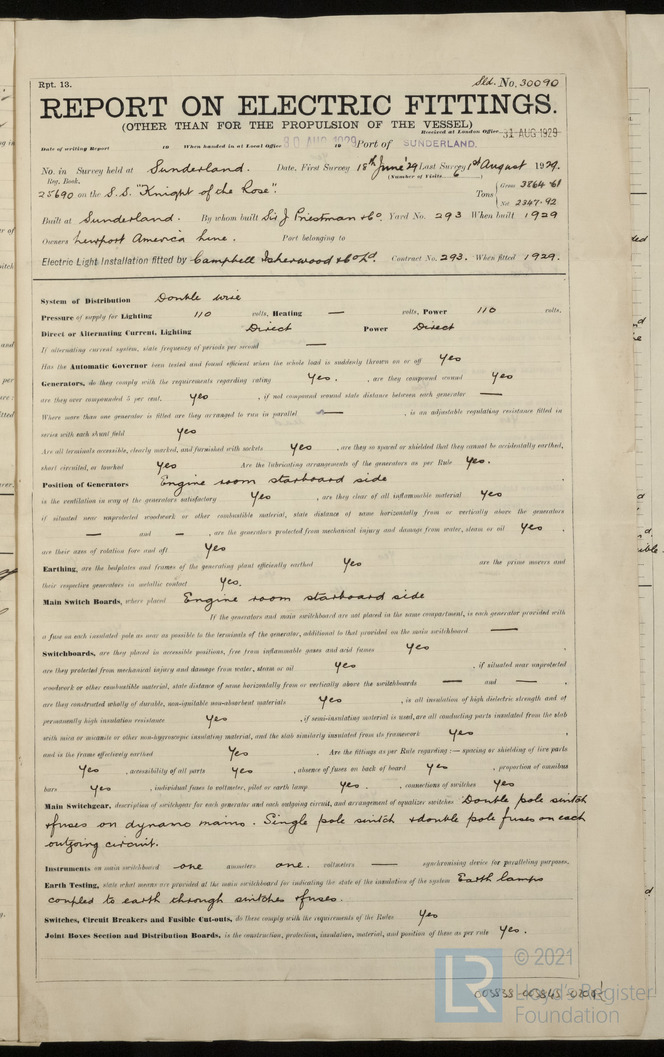 Rpt. 13.
Sld. No. 30090
REPORT ON ELECTRIC FITTINGS.
(OTHER THAN FOR THE PROPULSION OF THE VESSEL)
Received at London Office 31 AUG 1929
Date of writing Report 19 When handed in at Local Office 30 AUG 1929 19 Port of SUNDERLAND.
No. in Survey held at Sunderland. Date, First Survey 18th June '29 Last Survey 1st August 1929.
Reg. Book. (Number of Visits 6)
25690 on the S.S. "Knight of the Rose". Tons { Gross 3864.61
Net 2347.92
Built at Sunderland. By whom built Sir J Priestman & Co. Yard No. 293 When built 1929
Owners Newport America Line. Port belonging to
Electric Light Installation fitted by Campbell Isherwood & Co Ltd. Contract No. 293. When fitted 1929.
System of Distribution Double wire
Pressure of supply for Lighting 110 volts, Heating — volts, Power 110 volts.
Direct or Alternating Current, Lighting Direct Power Direct
If alternating current system, state frequency of periods per second —
Has the Automatic Governor been tested and found efficient when the whole load is suddenly thrown on or off Yes
Generators, do they comply with the requirements regarding rating Yes. , are they compound wound Yes
are they over compounded 5 per cent. Yes , if not compound wound state distance between each generator —
Where more than one generator is fitted are they arranged to run in parallel — , is an adjustable regulating resistance fitted in
series with each shunt field Yes
Are all terminals accessible, clearly marked, and furnished with sockets Yes , are they so spaced or shielded that they cannot be accidentally earthed,
short circuited, or touched Yes Are the lubricating arrangements of the generators as per Rule Yes.
Position of Generators Engine room starboard side
is the ventilation in way of the generators satisfactory Yes , are they clear of all inflammable material Yes
if situated near unprotected woodwork or other combustible material, state distance of same horizontally from or vertically above the generators
— and — , are the generators protected from mechanical injury and damage from water, steam or oil Yes ,
are their axes of rotation fore and aft Yes
Earthing, are the bedplates and frames of the generating plant efficiently earthed Yes are the prime movers and
their respective generators in metallic contact Yes.
Main Switch Boards, where placed Engine room starboard side
If the generators and main switchboard are not placed in the same compartment, is each generator provided with
a fuse on each insulated pole as near as possible to the terminals of the generator, additional to that provided on the main switchboard —
Switchboards, are they placed in accessible positions, free from inflammable gases and acid fumes Yes ,
are they protected from mechanical injury and damage from water, steam or oil Yes , if situated near unprotected
woodwork or other combustible material, state distance of same horizontally from or vertically above the switchboards — and — ,
are they constructed wholly of durable, non-ignitable non-absorbent materials Yes , is all insulation of high dielectric strength and of
permanently high insulation resistance Yes , if semi-insulating material is used, are all conducting parts insulated from the slab
with mica or micanite or other non-hygroscopic insulating material, and the slab similarly insulated from its framework Yes ,
and is the frame effectively earthed Yes . Are the fittings as per Rule regarding :— spacing or shielding of live parts
Yes , accessibility of all parts Yes , absence of fuses on back of board Yes , proportion of omnibus
bars Yes , individual fuses to voltmeter, pilot or earth lamp Yes . , connections of switches Yes
Main Switchgear, description of switchgear for each generator and each outgoing circuit, and arrangement of equalizer switches Double pole switch
& fuses on dynamo mains. Single pole switch & double pole fuses on each
outgoing circuit.
Instruments on main switchboard one ammeters one. voltmeters — synchronising device for paralleling purposes.
Earth Testing, state what means are provided at the main switchboard for indicating the state of the insulation of the system Earth lamps
coupled to earth through switches & fuses.
Switches, Circuit Breakers and Fusible Cut-outs, do these comply with the requirements of the Rules Yes
Joint Boxes Section and Distribution Boards, is the construction, protection, insulation, material, and position of these as per rule Yes.
© 2021
LR Lloyd's Register
Foundation